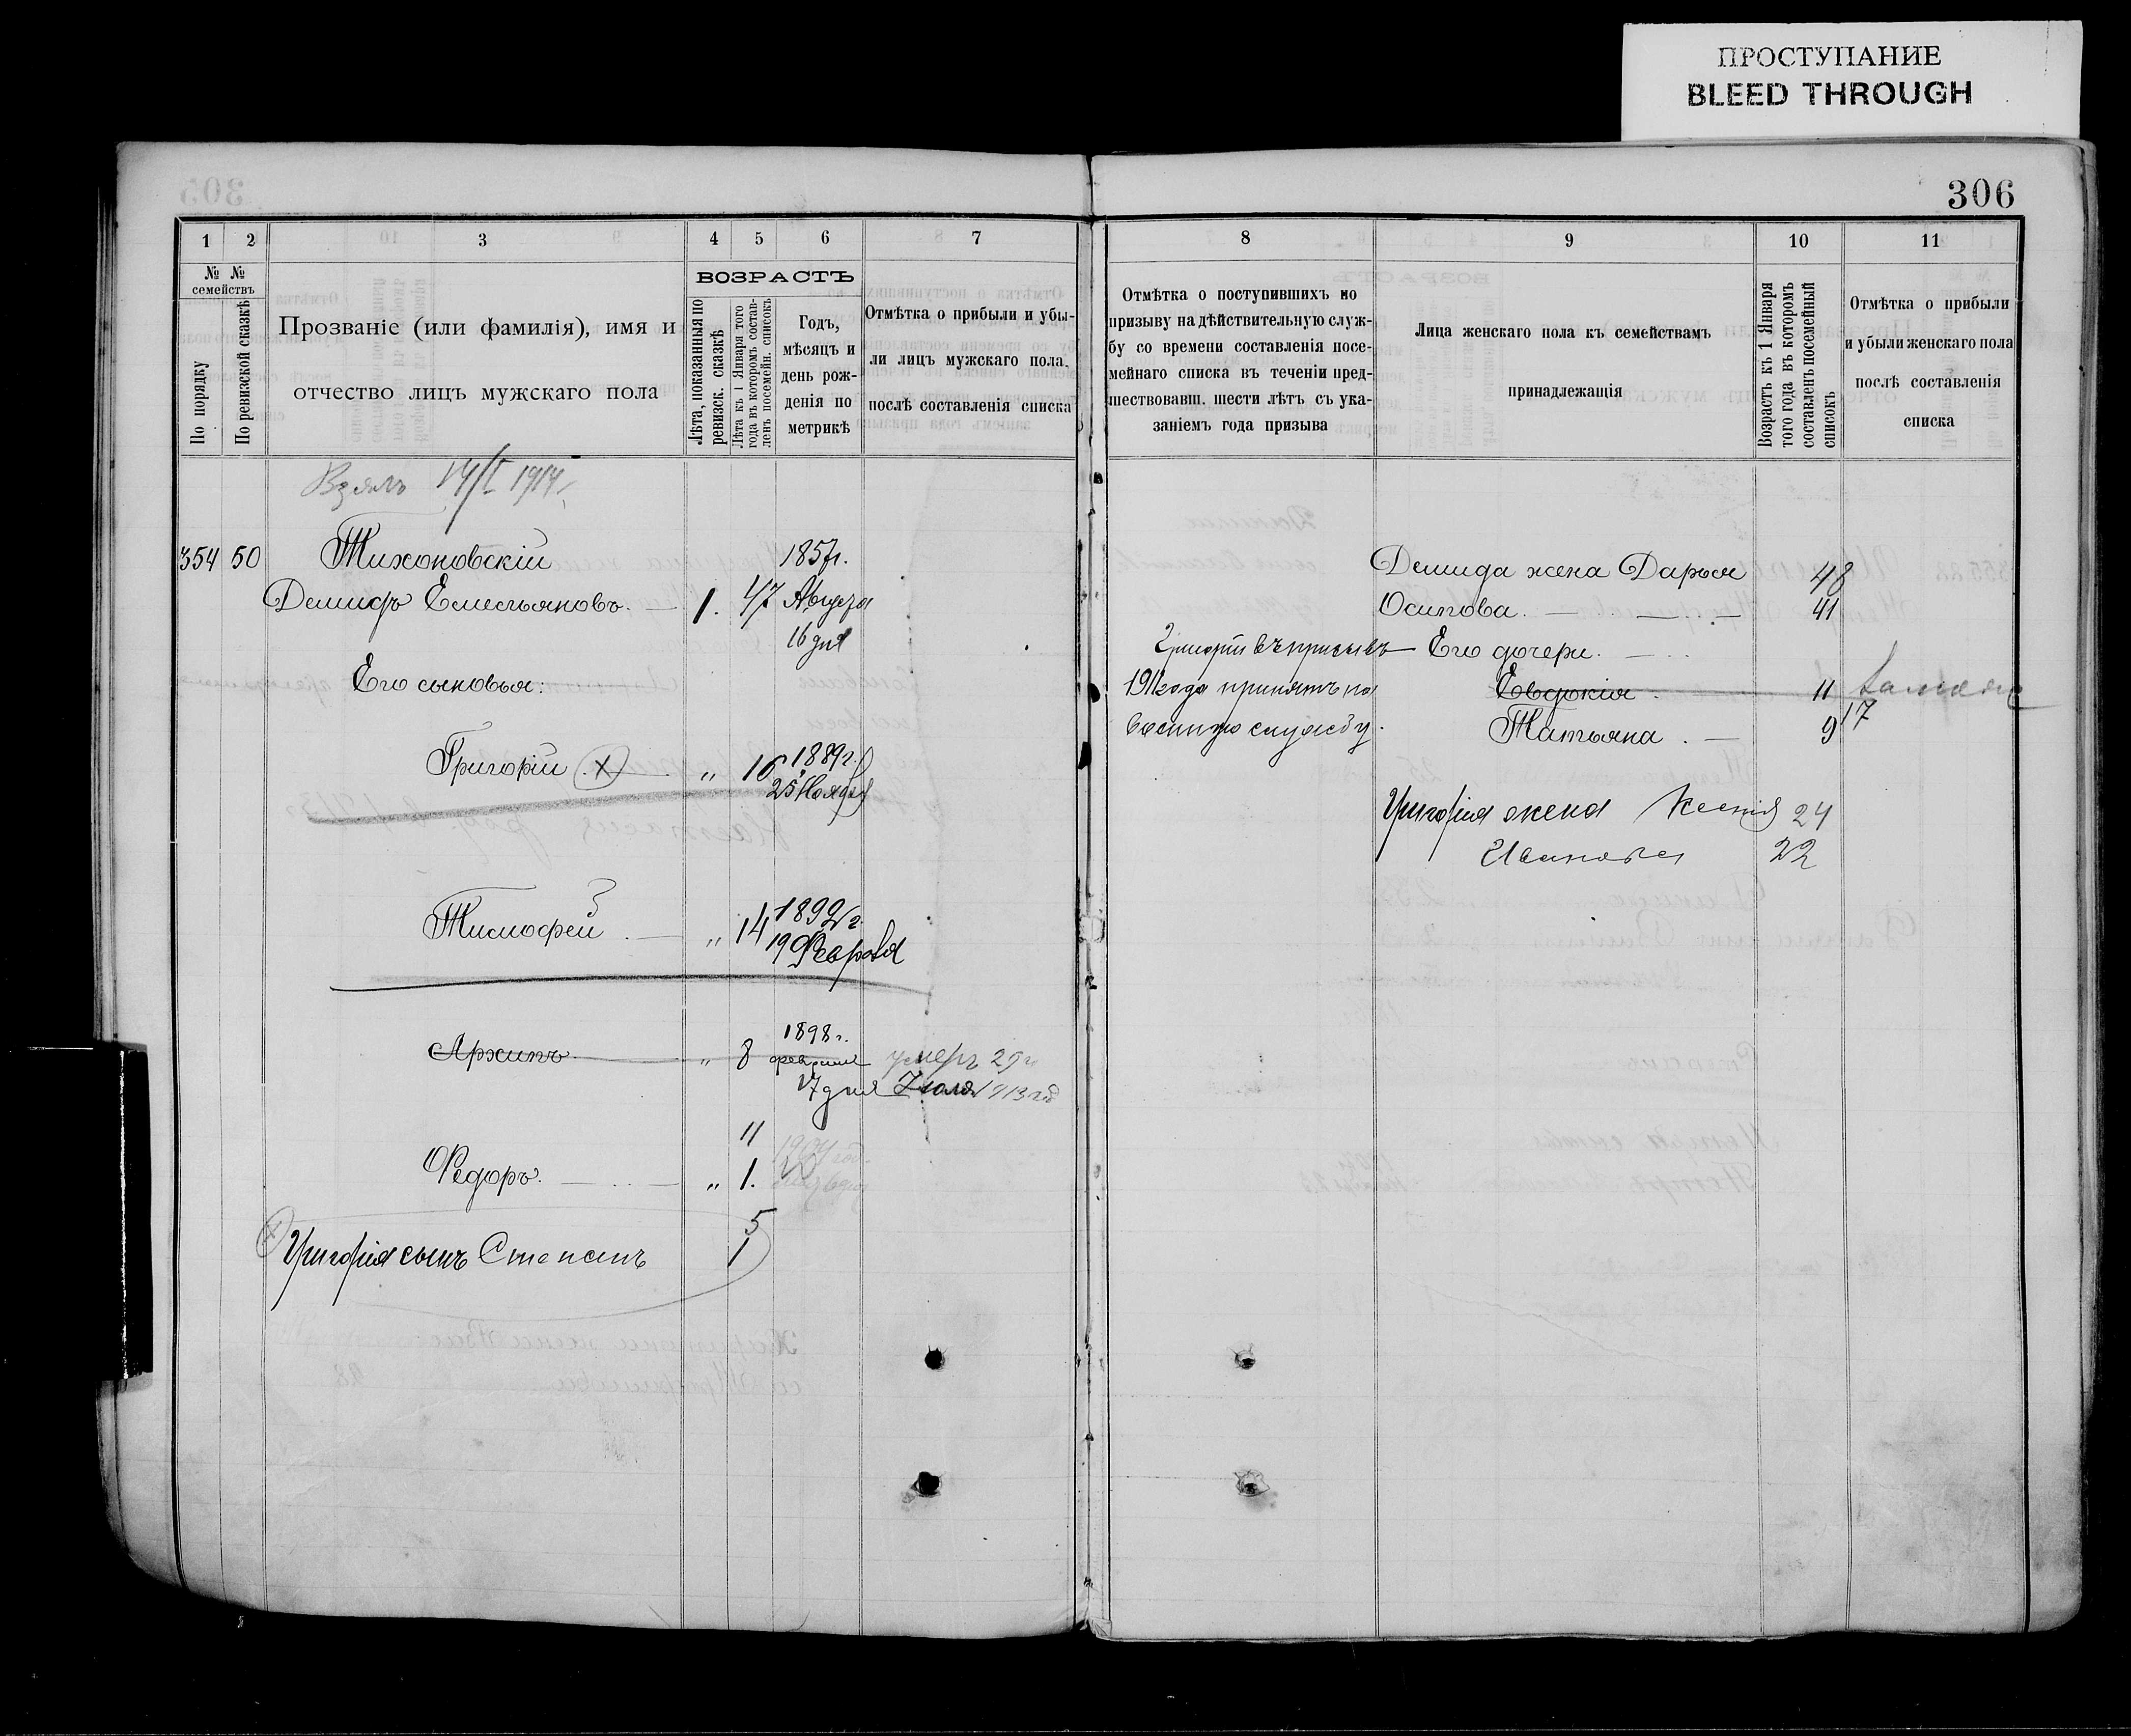 ПРОСТУПАНИЕ
BLEED THROUGH
306
1 2 3 4 5 6 7
№ № семействъ
По порядку
По ревизской сказкѣ
Прозваніе (или фамилія), имя и
отчество лицъ мужскаго пола
ВОЗРАСТЪ
Лѣта, показанныя по
ревизск. сказкѣ
Лѣта къ 1 Января того
года въ которомъ состав-
ленъ посемейн. списокъ
Годъ,
мѣсяцъ и
день рож-
денія по
метрикѣ
Отмѣтка о прибыли и убы-
ли лицъ мужскаго пола
послѣ составленія списка
Взялъ 14/I 1914
354 50 Тихоновскій 1857г.
Демидъ Емельяновъ. 1. 47 Августа
16 дня
Его сыновья:
Григорій X „ 16 1889г.
25 Ноября
Тимофей „ 14 1892 г.
19 Февраля
1898 г.
Архипъ „ 8 февраля умеръ 29
17 дня Іюля 1913
11
Федоръ. „ 1.
5
Григорія сынъ Степанъ 1
8 9 10 11
Отмѣтка о поступившихъ по
призыву на дѣйствительную служ-
бу со времени составленія посе-
мейнаго списка въ теченіи пред-
шествовавш. шести лѣтъ съ ука-
заніемъ года призыва
Лица женскаго пола къ семействамъ
принадлежащія
Возрастъ къ 1 Января
того года въ которомъ
составленъ посемейный
списокъ
Отмѣтка о прибыли
и убыли женскаго пола
послѣ составленія
списка
Демида жена Дарья 48
Осипова. 41
Григорій въ призывъ Его дочери.
года принятъ на Евдокія 11
военную службу. Татьяна. 9 17
Григорія жена Ксенія 24
Иванова 22